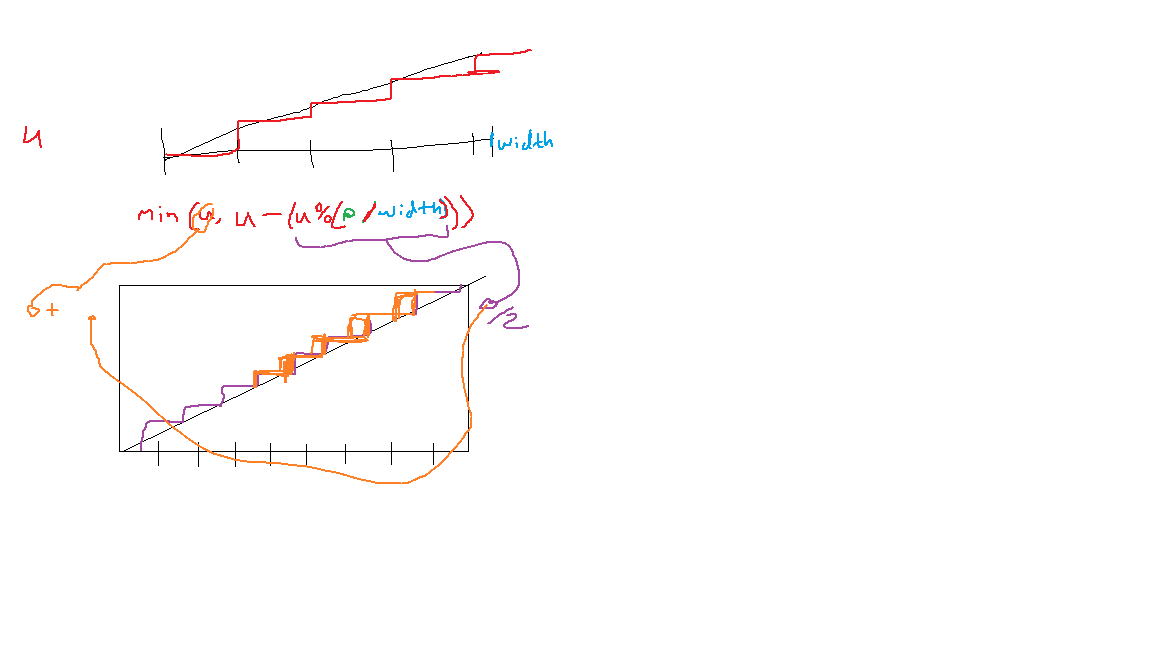 u
width
min(u, u-(u%(p/width)))
+
/2